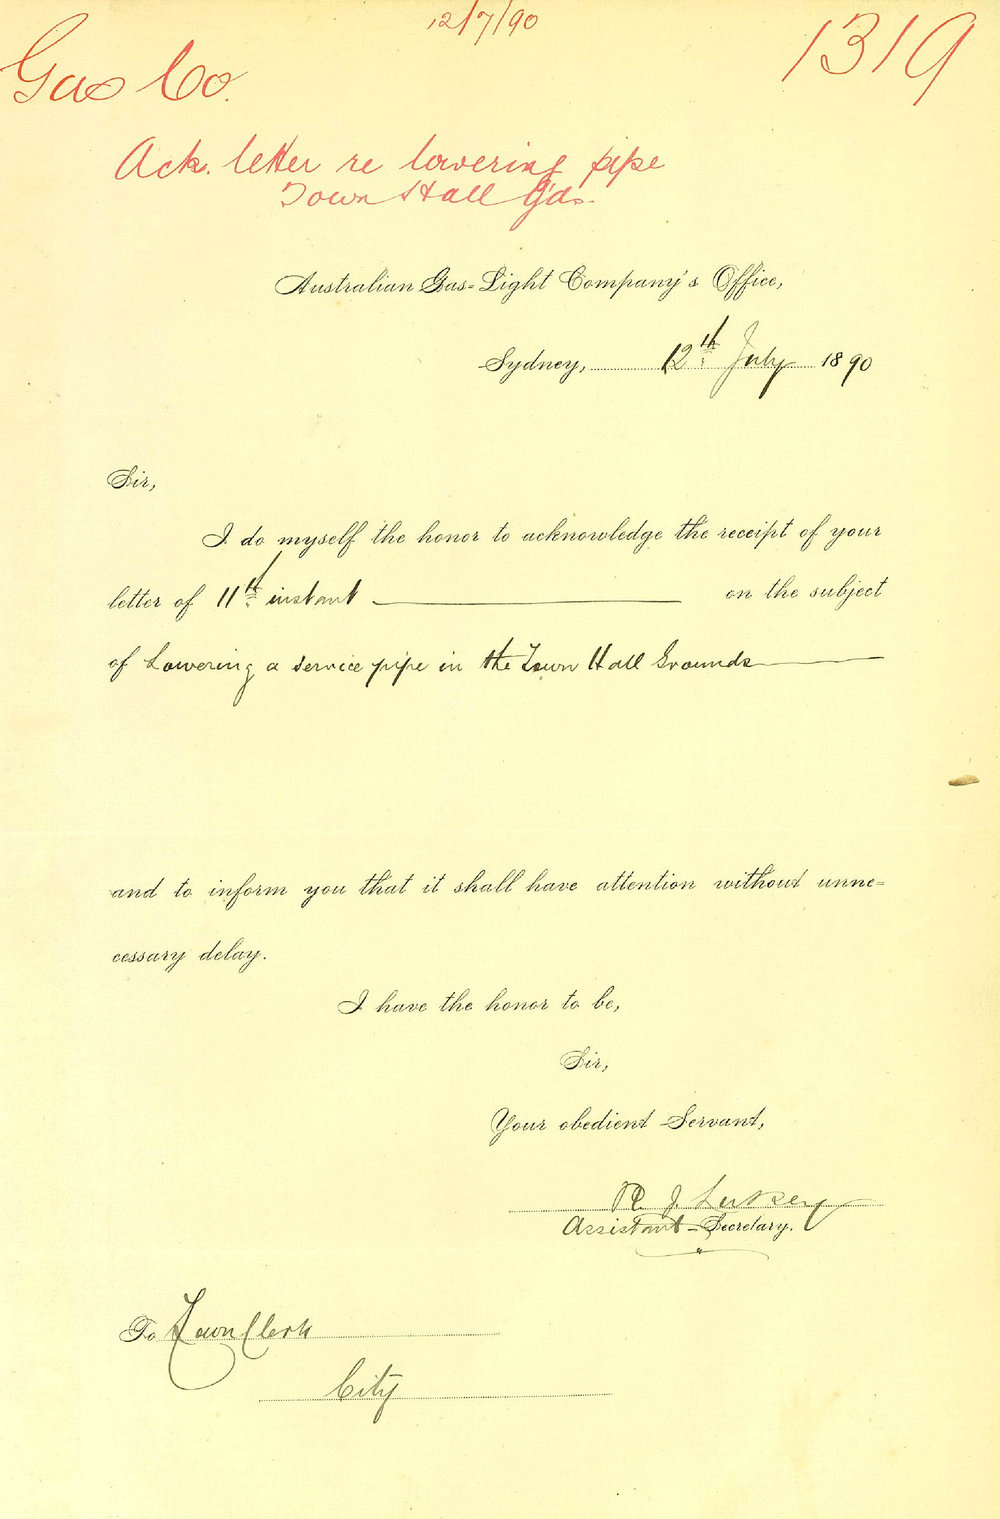 12/7/90
1319
Gas Co.
Ack. letter re lowering pipe
Town Hall Gds.
Australian Gas-Light Company's Office,
Sydney, 12th July 1890
Sir,
I do myself the honor to acknowledge the receipt of your
letter of 11th instant on the subject
of Lowering a service pipe in the Town Hall Grounds
and to inform you that it shall have attention without unne=
cessary delay.
I have the honor to be,
Sir,
Your obedient Servant,
R. J. Lukey
Assistant-Secretary.
To Town Clerk
City